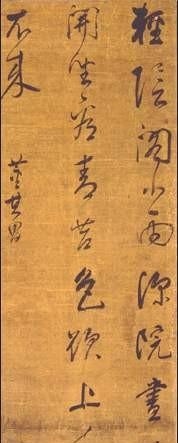 輕陰閣小雨深院晝
開坐看青苔色欲上人
衣來
董其昌